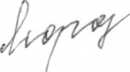 Мороз